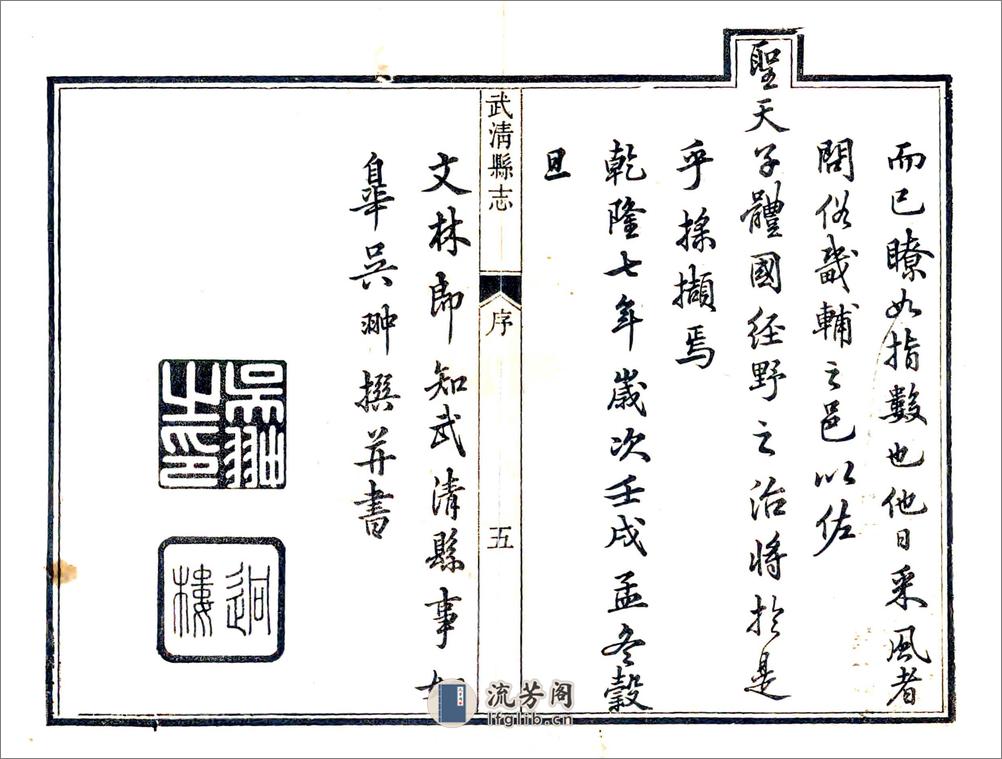 而已瞭如指數也他日采風者
問俗畿輔之邑以佐
聖天子體國經野之治將於是
乎採擷焉
乾隆七年歲次壬戌孟冬穀
旦
武清縣志
序
五
文林郎知武清縣事如
臯吳翀撰并書
吳翀之印
逈樓
流芳阁
lfglib.cn